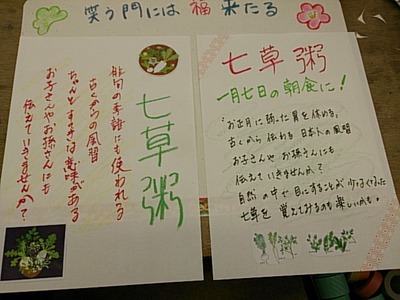 笑う門には福来たる
七草粥
俳句の季語にも使われる
古くからの風習
ちゃんとすてきな意味がある
お子さんやお孫さんにも
伝えていきませんか?
七草粥
一月七日の朝食に!
お正月に弱った胃を休める、
古くから伝わる日本人の風習
お子さんやお孫さんにも
伝えていきませんか?
自然の中で目にすることが少なくなった
七草を覚えてみるのも楽しいかも。